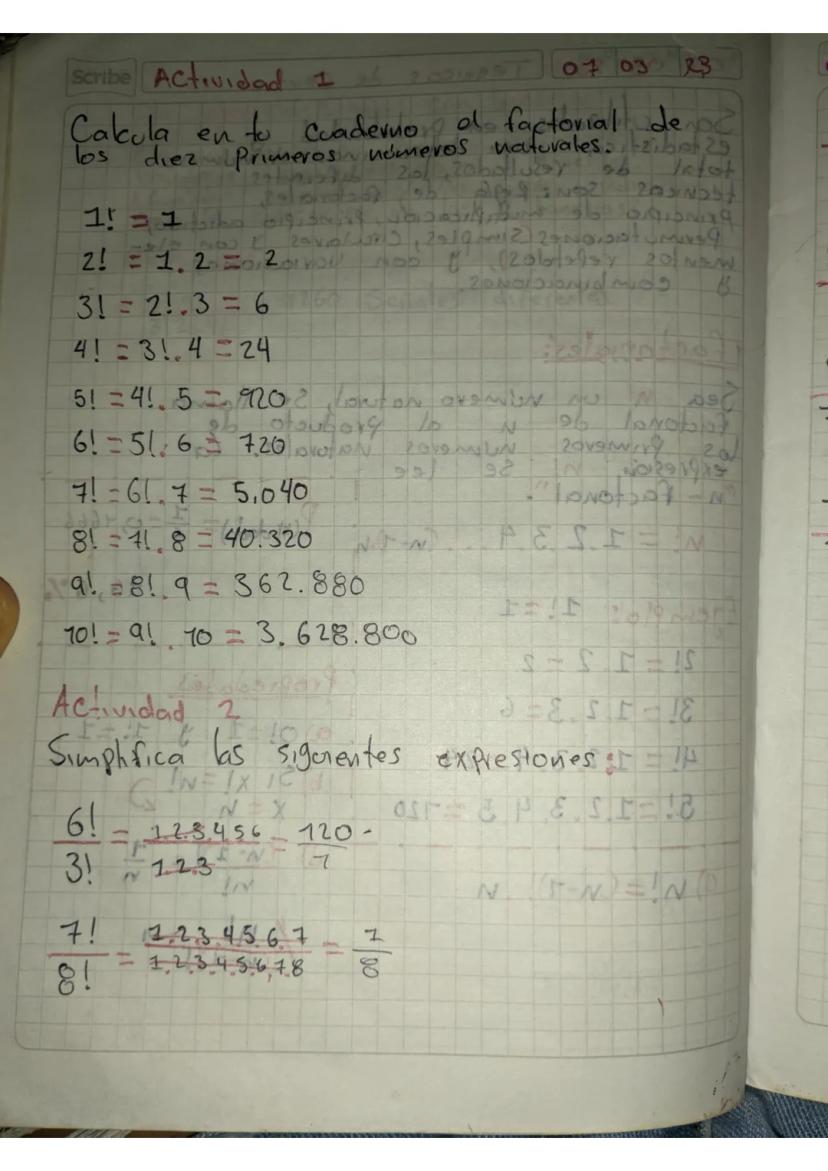 Scribe Actividad 1 07 03 23
Calcula en tu cuaderno el factorial de
los diez primeros números naturales.
1! = 1
2! = 1.2 = 2
3! = 2!.3 = 6
4! = 3!.4 = 24
5! = 4!.5 = 120
6! = 5!.6 = 720
7! = 6!.7 = 5.040
8! = 7!.8 = 40.320
9! = 8!.9 = 362.880
10! = 9!.10 = 3.628.800
Actividad 2
Simplifica las siguientes expresiones:
6!/3! = 1.2.3.4.5.6/1.2.3 = 120/1
7!/8! = 1.2.3.4.5.6.7/1.2.3.4.5.6.7.8 = 1/8